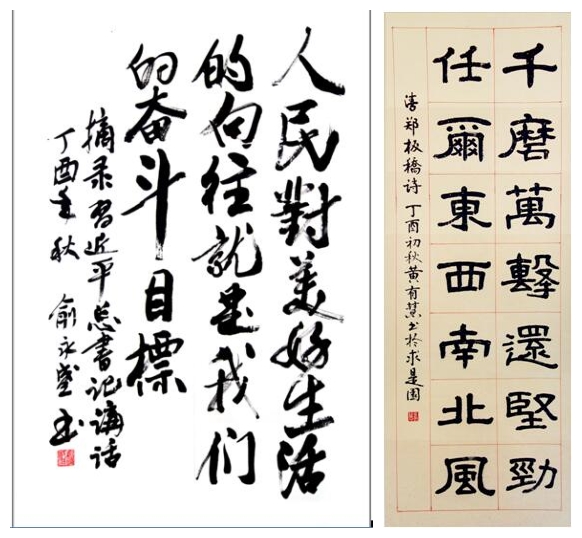 人民對美好生活
的向往就是我们
的奋斗目標
摘录習近平总書记講话
丁酉年秋 俞永盛书
千磨萬擊還堅勁
任爾東西南北風
清郑板橋诗 丁酉初秋黄有慕书於求是园